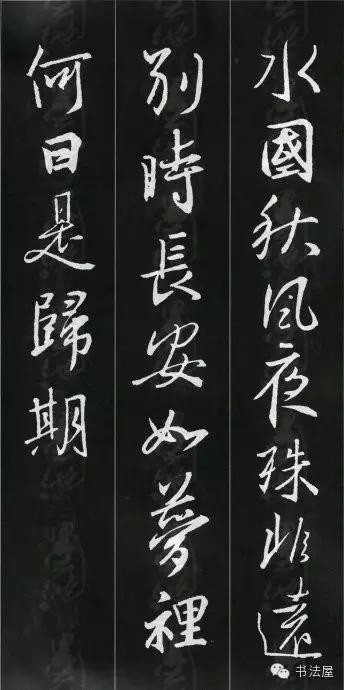 水國秋風夜殊非遠
別時長安如夢裡
何日是歸期
书法屋